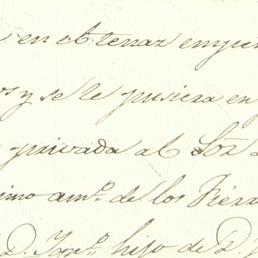 en obtener empu
os y se le pusiera en
privada al Sor
timo amo. de los
D. Jph. hijo de D.